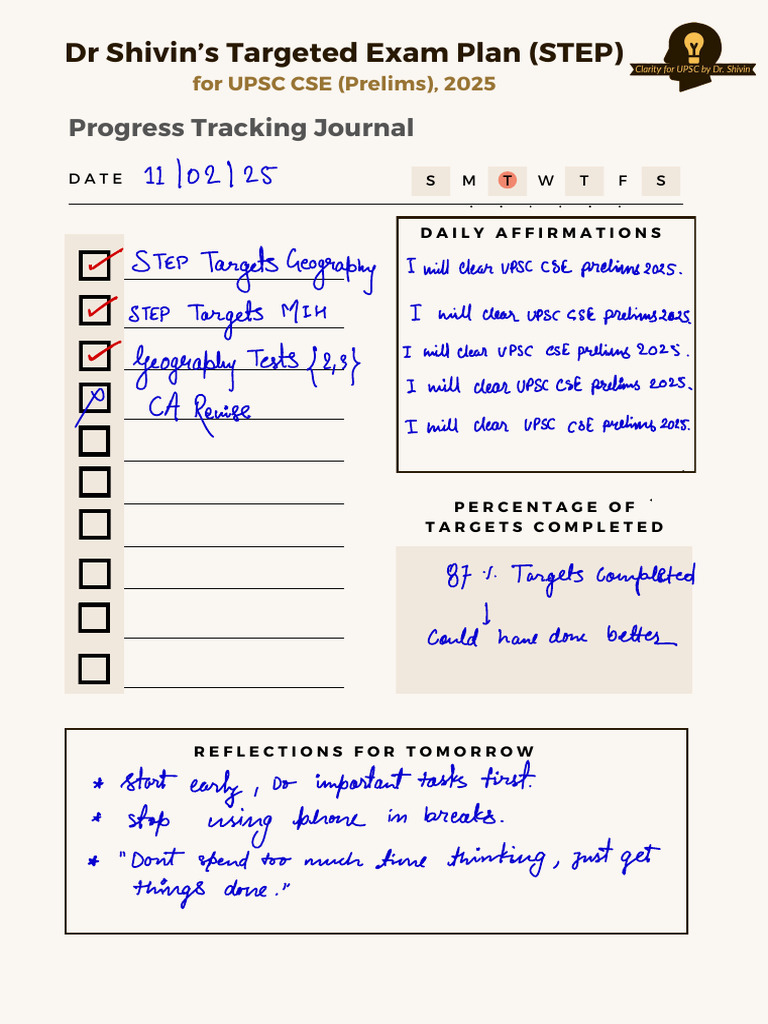 Dr Shivin's Targeted Exam Plan (STEP)
for UPSC CSE (Prelims), 2025
Clarity for UPSC by Dr. Shivin
Progress Tracking Journal
DATE 11/02/25
S M T W T F S
STEP Targets Geography
STEP Targets MIH
Geography Tests {2,3}
CA Revise
DAILY AFFIRMATIONS
I will clear UPSC CSE prelims 2025.
I will clear UPSC CSE prelims 2025
I will clear UPSC CSE prelims 2025.
I will clear UPSC CSE prelims 2025.
I will clear UPSC CSE prelims 2025.
PERCENTAGE OF
TARGETS COMPLETED
87 % Targets completed
↓
Could have done better
REFLECTIONS FOR TOMORROW
* Start early, Do important tasks first.
* Stop using phone in breaks.
* "Dont spend too much time thinking, just get
things done."